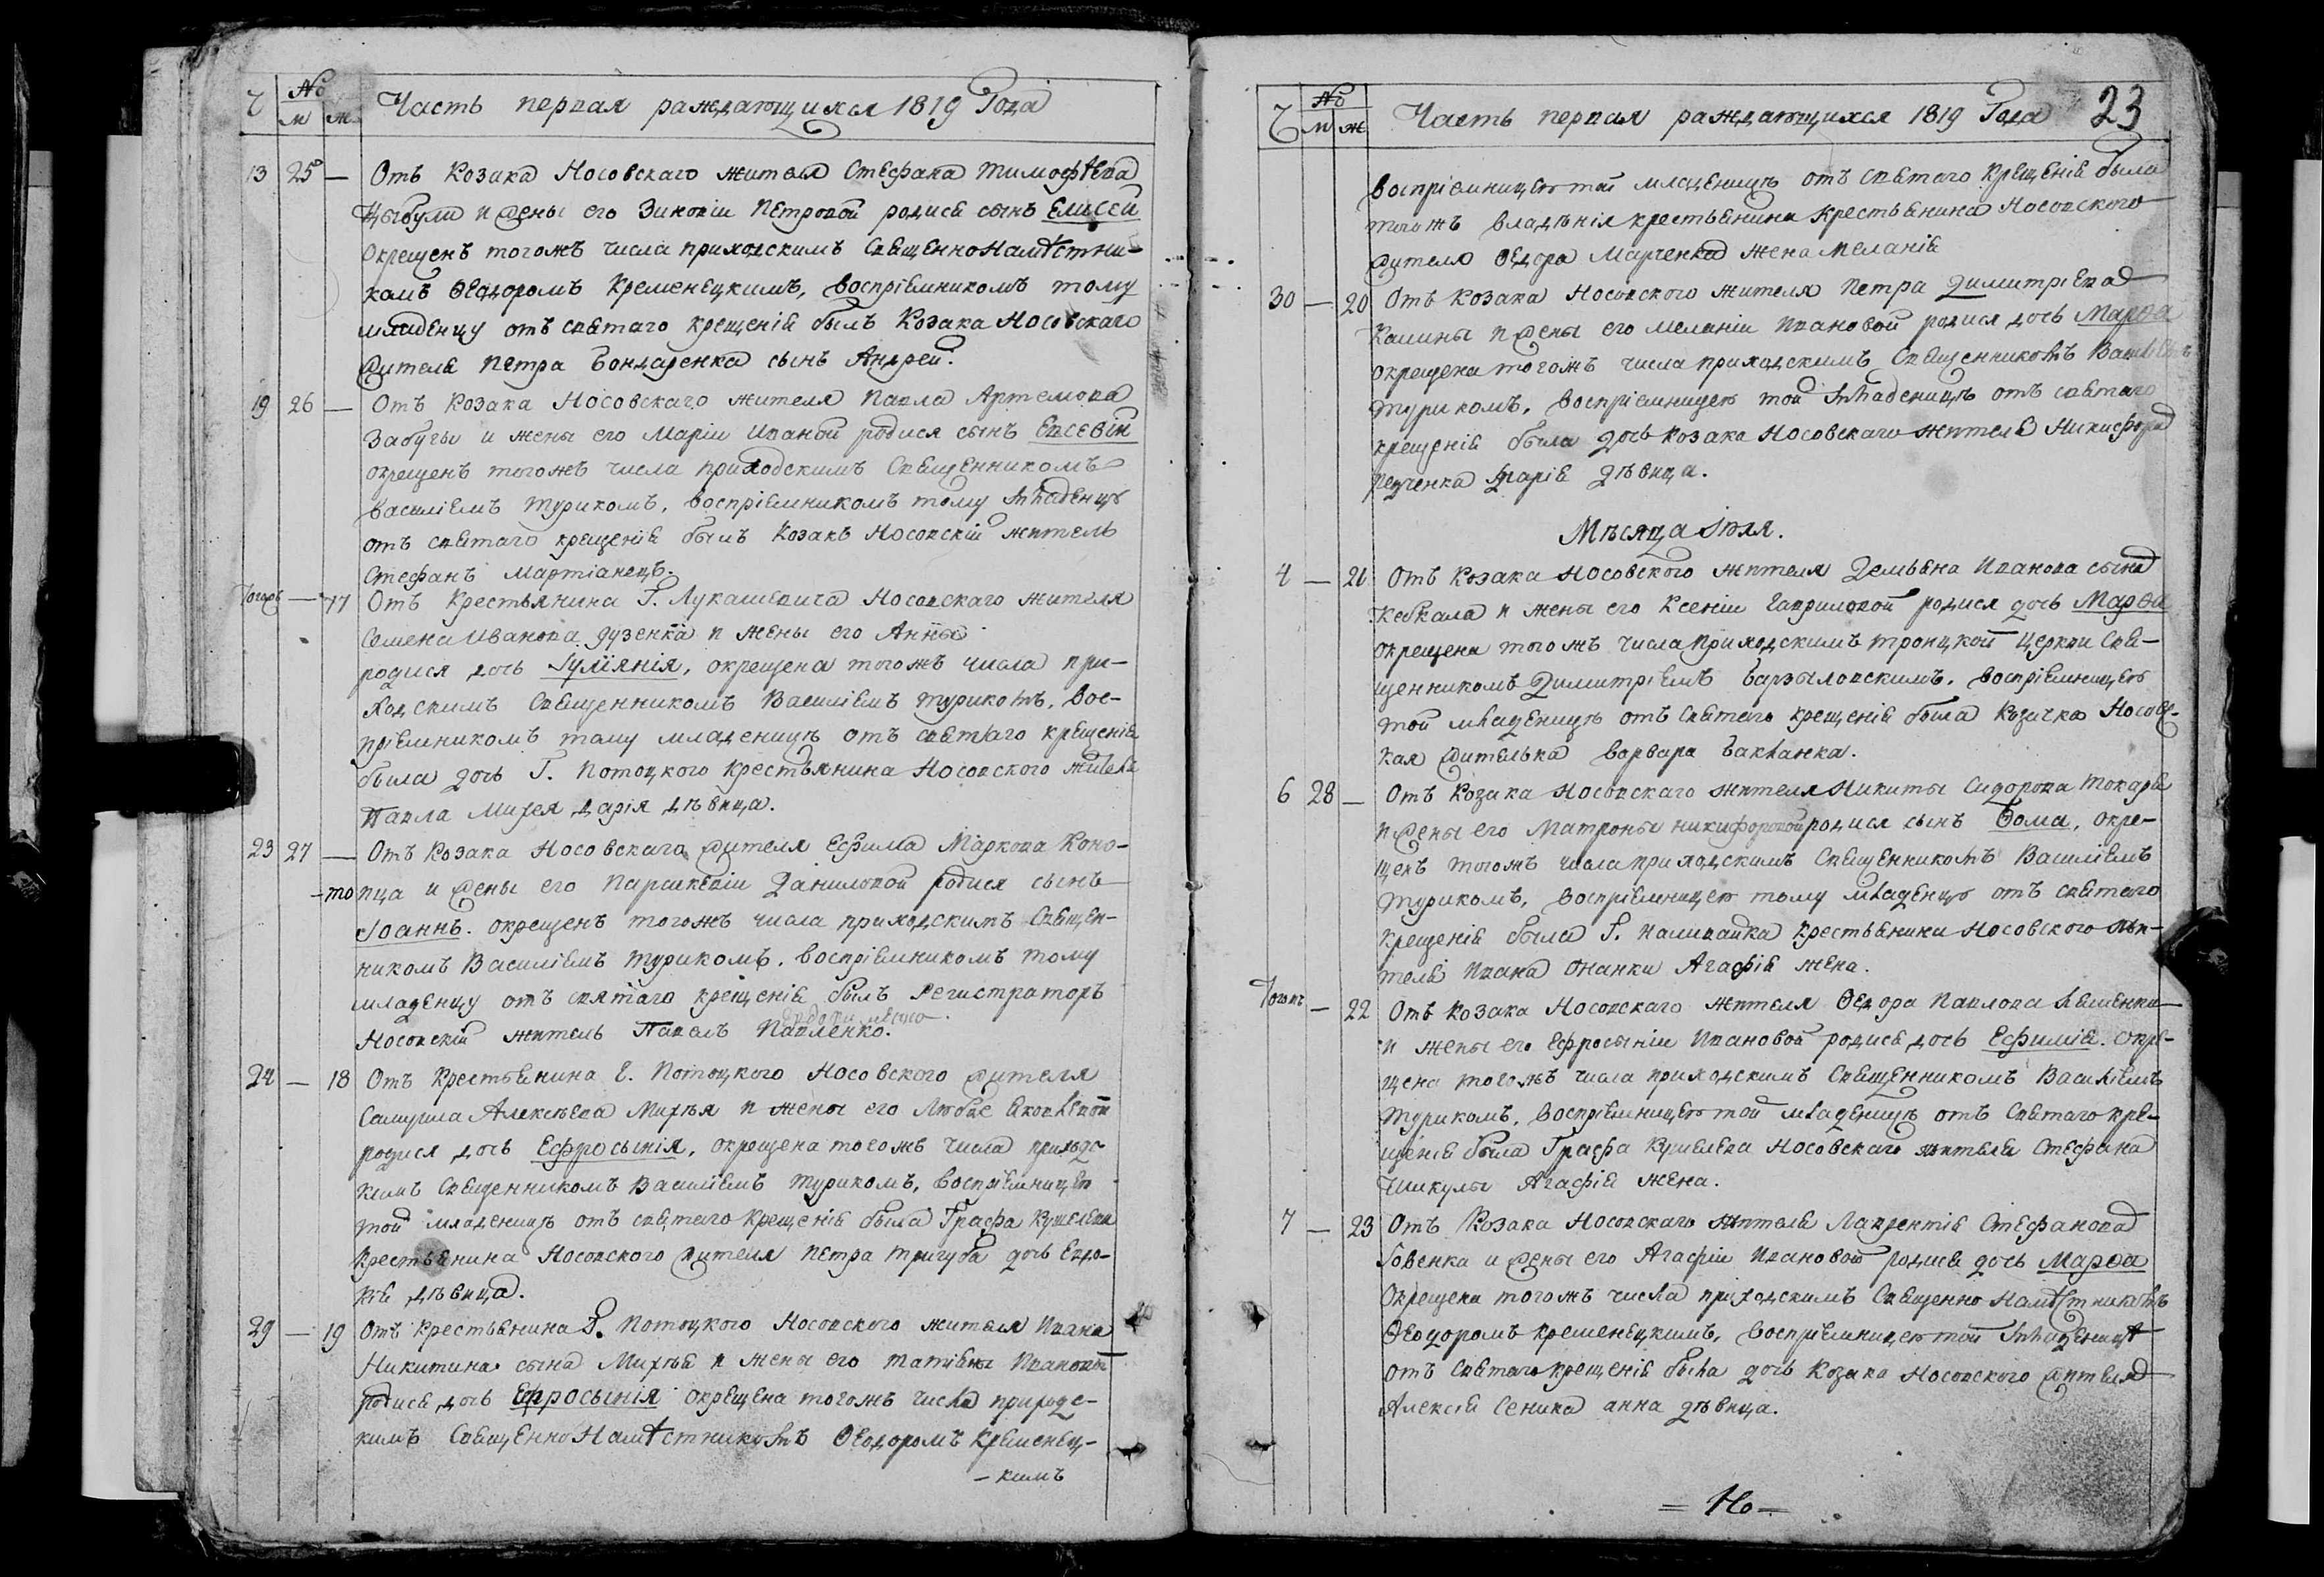 Ч № м ж Часть первая раждающихся 1819 Года
13 25 — Отъ Козака Носовскаго жителя Стефана Тимофѣева
Цыбули и жены его Зиновіи Петровой родися сынъ Елисей
окрещенъ тогожъ числа приходскимъ СвященноНамѣстни-
комъ Ѳеодоромъ Кременецкимъ, воспріемникомъ тому
младенцу отъ святаго крещенія былъ Козака Носовскаго
жителя Петра Бондаренка сынъ Андрей.
19 26 — Отъ Козака Носовскаго жителя Павла Артемова
Забугы и жены его Маріи Иваной родися сынъ Евсевій
окрещенъ тогожъ числа приходскимъ Священникомъ
Василіемъ Турикомъ, воспріемникомъ тому младенцу
отъ святаго крещенія былъ Козакъ Носовскій житель
Стефанъ Мартіанецъ.
Тогожъ — 17 Отъ Крестьянина Г. Лукашевича Носовскаго жителя
Семена Иванова Дузенка и жены его Анны
родися дочь Іуліянія, окрещена тогожъ числа при-
ходскимъ Священникомъ Василіемъ Турикомъ, вос-
пріемникомъ тому младеницѣ отъ святаго крещенія
была дочь Г. Потоцкого Крестьянина Носовского жителя
Павла Михея Дарія дѣвица.
23 27 — Отъ Козака Носовскаго жителя Ефима Маркова Коно-
-то пца и жены его Параскевіи Даниловой родися сынъ
Іоаннъ. окрещенъ тогожъ числа приходскимъ Священ-
никомъ Василіемъ Турикомъ, воспріемникомъ тому
младенцу отъ святаго крещенія былъ Регистраторъ
Носовскій житель Павелъ Павленко.
24 — 18 Отъ Крестьянина Г. Потоцкого Носовского жителя
Самуила Алексѣева Михѣя и жены его Любве Яковлевой
родися дочь Ефросынія, окрещена тогожъ числа приходс-
кимъ Священникомъ Василіемъ Турикомъ, воспріемницею
той младеницѣ отъ святаго крещенія была Графа Кушелева
Крестьянина Носовского жителя Петра Тригуба дочь Евдо-
кія дѣвица.
29 — 19 Отъ Крестьянина Г. Потоцкого Носовского жителя Ивана
Никитина сына Михѣя и жены его Татіяны Ивановой
родися дочь Ефросынія окрещена тогожъ числа приходс-
кимъ СвященноНамѣстникомъ Ѳеодоромъ Кременец-
-кимъ
Ч № м ж Часть первая раждающихся 1819 Года 23
воспріемницею той младеницѣ отъ святаго крещенія была
тогожъ владѣнія крестьянина крестьянина Носовского
жителя Ѳедора Марченка жена Меланія
30 — 20 Отъ Козака Носовского жителя Петра Димитріева
Калины и жены его Меланіи Ивановой родися дочь Марѳа
окрещена тогожъ числа приходскимъ Священникомъ Василіемъ
Турикомъ, воспріемницею той младеницѣ отъ святаго
крещенія была дочь Козака Носовскаго жителя Никифора
Редченка Марія дѣвица.
Мѣсяца Іюля.
4 — 21 Отъ Козака Носовского жителя Демьяна Иванова сына
Кебкала и жены его Ксеніи Гавриловой родися дочь Марѳа
окрещена тогожъ числа приходскимъ Троицкой Церкви Свя-
щенникомъ Димитріемъ Барзыловскимъ, воспріемницею
той младеницѣ отъ святаго крещенія была Козачка Носовс-
кая жителька Варвара Бакланка.
6 28 — Отъ Козака Носовскаго жителя Никиты Сидорова Токаря
и жены его Матроны Никифоровой родися сынъ Ѳома, окре-
щенъ тогожъ числа приходскимъ Священникомъ Василіемъ
Турикомъ, воспріемницею тому младенцу отъ святаго
крещенія была Г. Паливайка крестьянина Носовского жи-
теля Ивана Онанки Агафія жена.
Тогожъ — 22 Отъ Козака Носовскаго жителя Ѳедора Павлова Лешенка
и жены его Ефросыніи Ивановой родися дочь Ефимія. окре-
щена тогожъ числа приходскимъ Священникомъ Василіемъ
Турикомъ, воспріемницею той младеницѣ отъ святаго кре-
щенія была Графа Кушелева Носовскаго жителя Стефана
Шикулы Агафія жена.
7 — 23 Отъ Козака Носовскаго жителя Лаврентія Стефанова
Іовенка и жены его Агафіи Ивановой родися дочь Марѳа
окрещена тогожъ числа приходскимъ СвященноНамѣстникомъ
Ѳеодоромъ Кременецкимъ, воспріемницею той младеницѣ
отъ святаго крещенія была дочь Козака Носовского жителя
Алексія Сеника Анна дѣвица.
= Но —